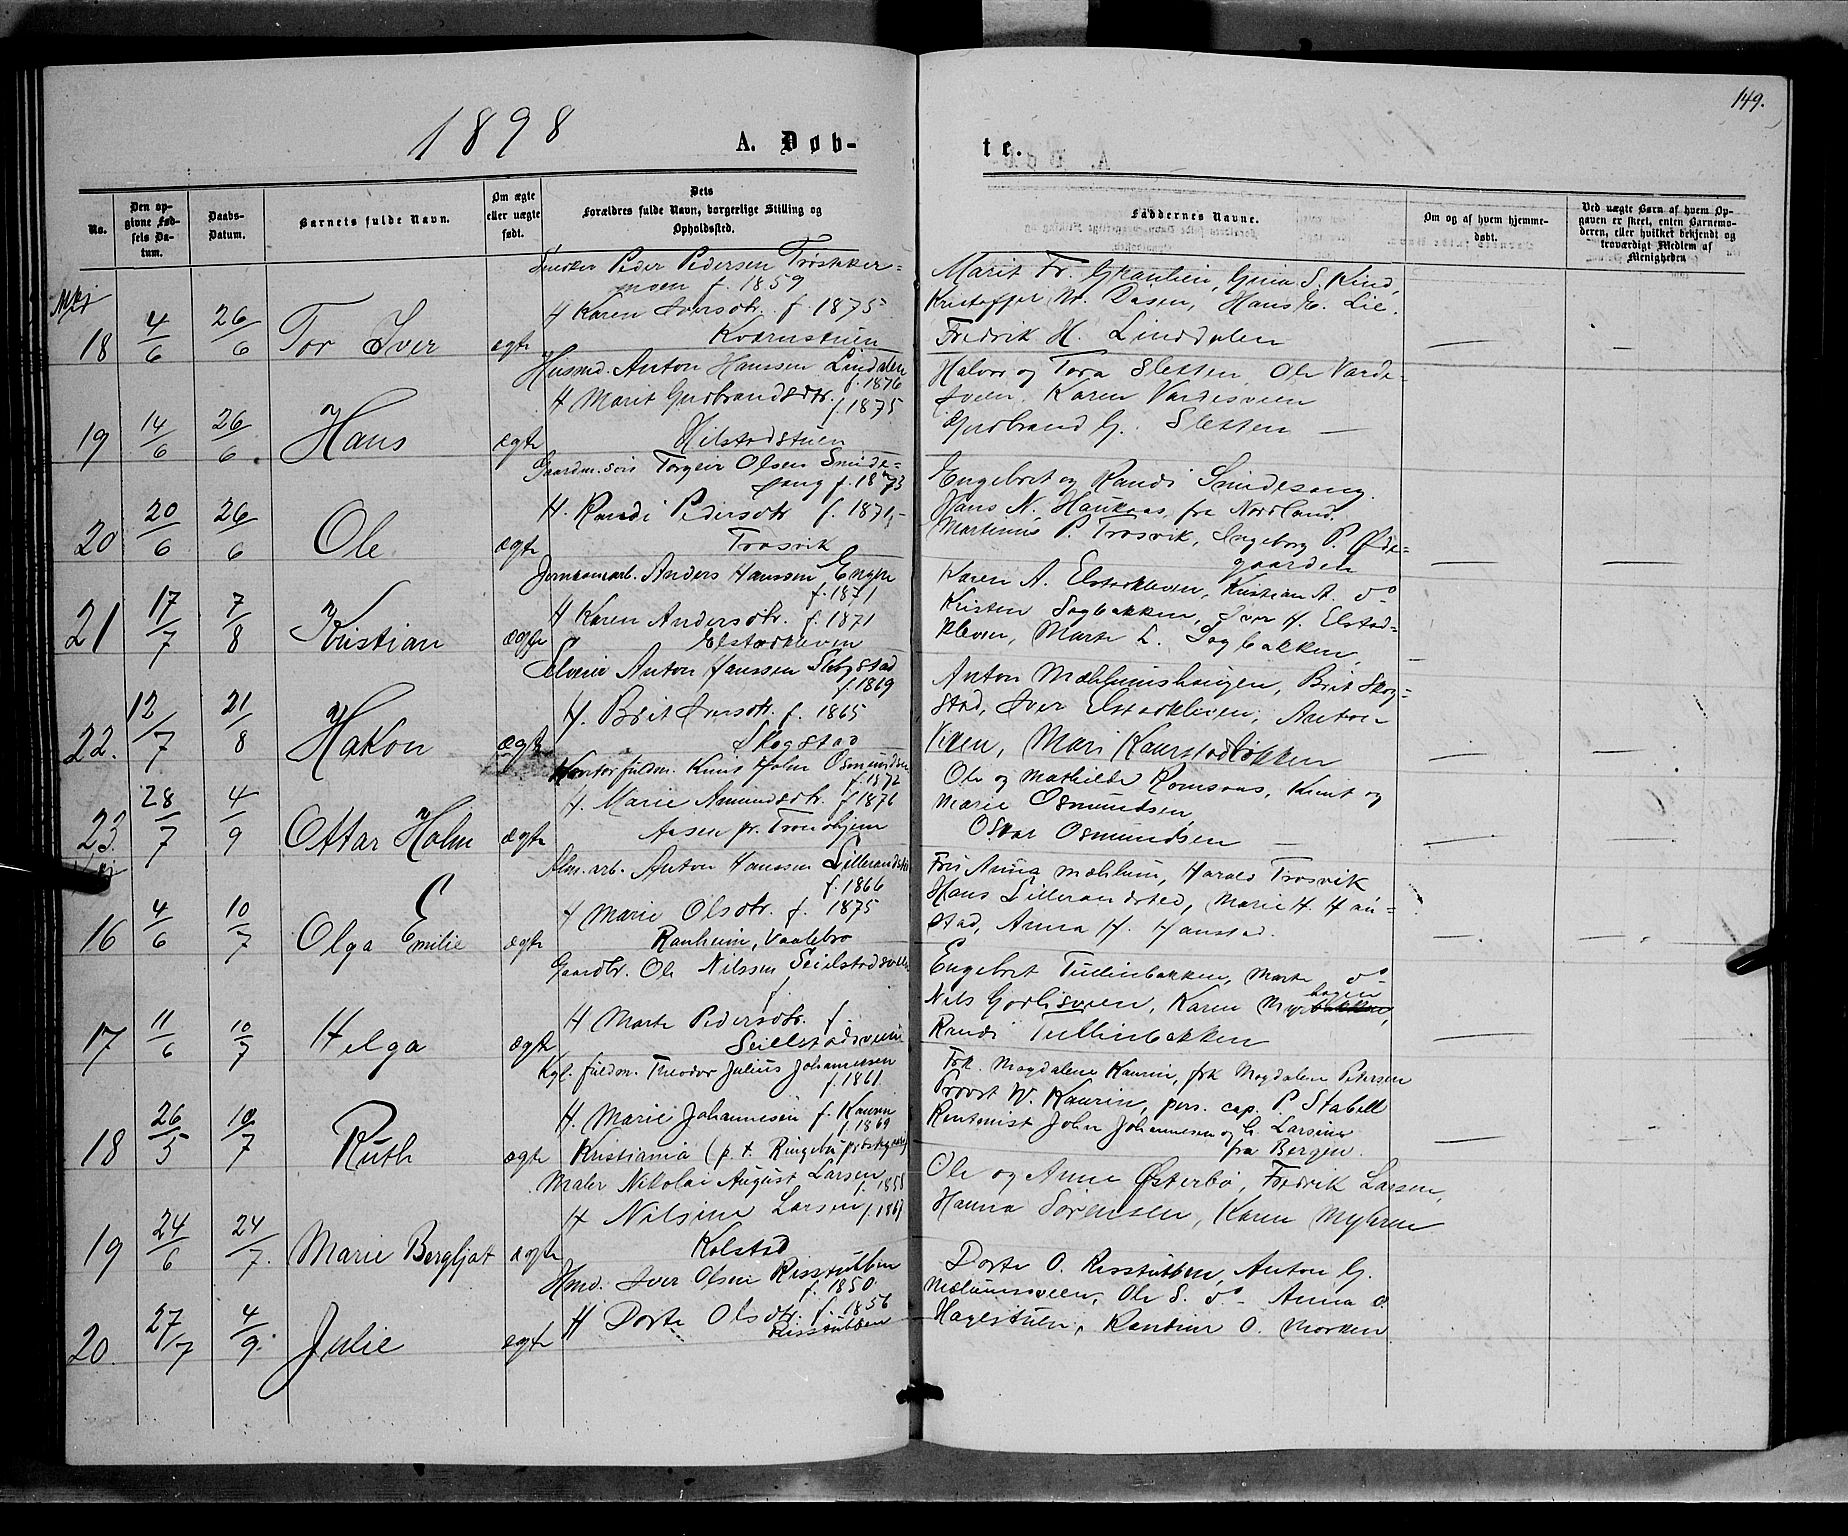 149.
1898
A. Døb-
te.
No.
Den op-
givne Fød-
sels Da-
tum.
Daabs-
Datum.
Barnets fulde Navn.
Om ægte
eller uægte
født.
Dets
Forældres fulde Navn, borgerlige Stilling og
Opholdssted.
Faddernes Navne.
Om og af hvem hjemme-
døbt.
Ved uægte Børn af hvem Op-
gaven er skeet, enten Barnemo-
deren, eller hvilket bekjendt og
troværdigt Medlem af
Menigheden
18 4/6 26/6 Tor Iver ægte
Peder Pedersen
moen f. 1859
H Karen Iversdtr. f. 1875
Kvernstuen
Marit Fr. Graulien, S. Rind,
Kristoffer Dasen, Hans E. Lie.
Fredrik H. Linddalen
19 14/6 26/6 Hans ægte
Husmd. Anton Hanssen Lindalen
f. 1876
H Marit Gudbrandsdtr. f. 1875
Kilstadstuen
Halvor og Tora Sletten, Ole Varde-
sveen, Karen Vardesveen
Gudbrand G. Sletten —
20 20/6 26/6 Ole ægte
Gaardm. søn Torgeir Olsen Smide-
sang f. 1873
H. Randi Pedersdtr f. 1871,-
Trosvik
Engebret og Randi Smidesang.
Hans N. Haukaas fra Nordland.
Martinus P. Trosvik, Ingeborg P. Øde-
gaarden
21 17/7 7/8 Kristian ægte
Jernbanearb. Anders Hanssen Engen
f. 1871
H Karen Andersdtr. f. 1871
Elstadkleven
Karen A. Elstadkleven, Kristian A. do
Kristen Sagbakken, Iver H. Elstad-
kleven, Marte L. Sagbakken,
22. 12/7 21/8 Hakon ægte
Selveier Anton Hanssen Skogstad
f. 1869
H. Brit Iversdtr. f. 1865
Skogstad
Anton Mæhlumshaugen, Brit Skog-
stad, Iver Elstadkleven, Anton
Viken, Mari Kaurstadløkken
23. 28/7 4/9 Ottar Holm ægte
Kontorfuldm. Knut Holm Osmundsen
f. 1872
H. Marie Amundsdtr. f 1876
Aasen pr. Trondhjem
Ole og Mathilde Romsaas, Knut og
Marie Osmundsen,
Oskar Osmundsen —
16 4/6 10/7 Olga Emilie ægte
Alm. arb. Anton Hanssen
f. 1866
H Marie Olsdtr. f. 1875
Ranheim, Vaalebro
Anna Mæhlum, Harald Trosvik
Hans Lillerandsted, Marie H. Han-
stad, Anna H. Hanstad.
17 11/6 10/7 Helga ægte
Gaardbr. Ole Nilssen Seielstadsveen
f
H Marte Pedersdtr. f.
Seielstadsveen
Engebret Tullinbakken, Marte do
Nils Gorlisveen, Karen Myrhagen,
Randi Tullinbakken
18 26/5 10/7 Ruth ægte
Kgl. fuldm. Theodor Julius Johannesen
f. 1861.
H. Marie Johannesen f. Kaurin
f. 1869
Kristiania (p. t. Ringebu prestegaard)
Frk. Magdalene Kaurin, frk Magdalene Petersen
Provst W. Kaurin, pers. cap. P. Stabell
Rentenist John Johannesen og G. Larsen
fra Bergen.
19 24/6 24/7. Marie Bergljot ægte
Maler Nikolai August Larsen f. 1858
H Nilsine Larsen f. 1861
Kolstad
Ole og Anne Østerbø, Fredrik Larsen,
Hanna Sørensen, Karen Myhren
20. 27/7 4/9. Julie ægte
Hmd. Iver Olsen Risstubben
f. 1850.
H Dorte Olsdtr. f. 1856
Risstubben
Dorte O. Risstubben, Anton G.
Mælumsveen, Ole S. do - Anna O.
Hagestuen, Rantine O. Morken